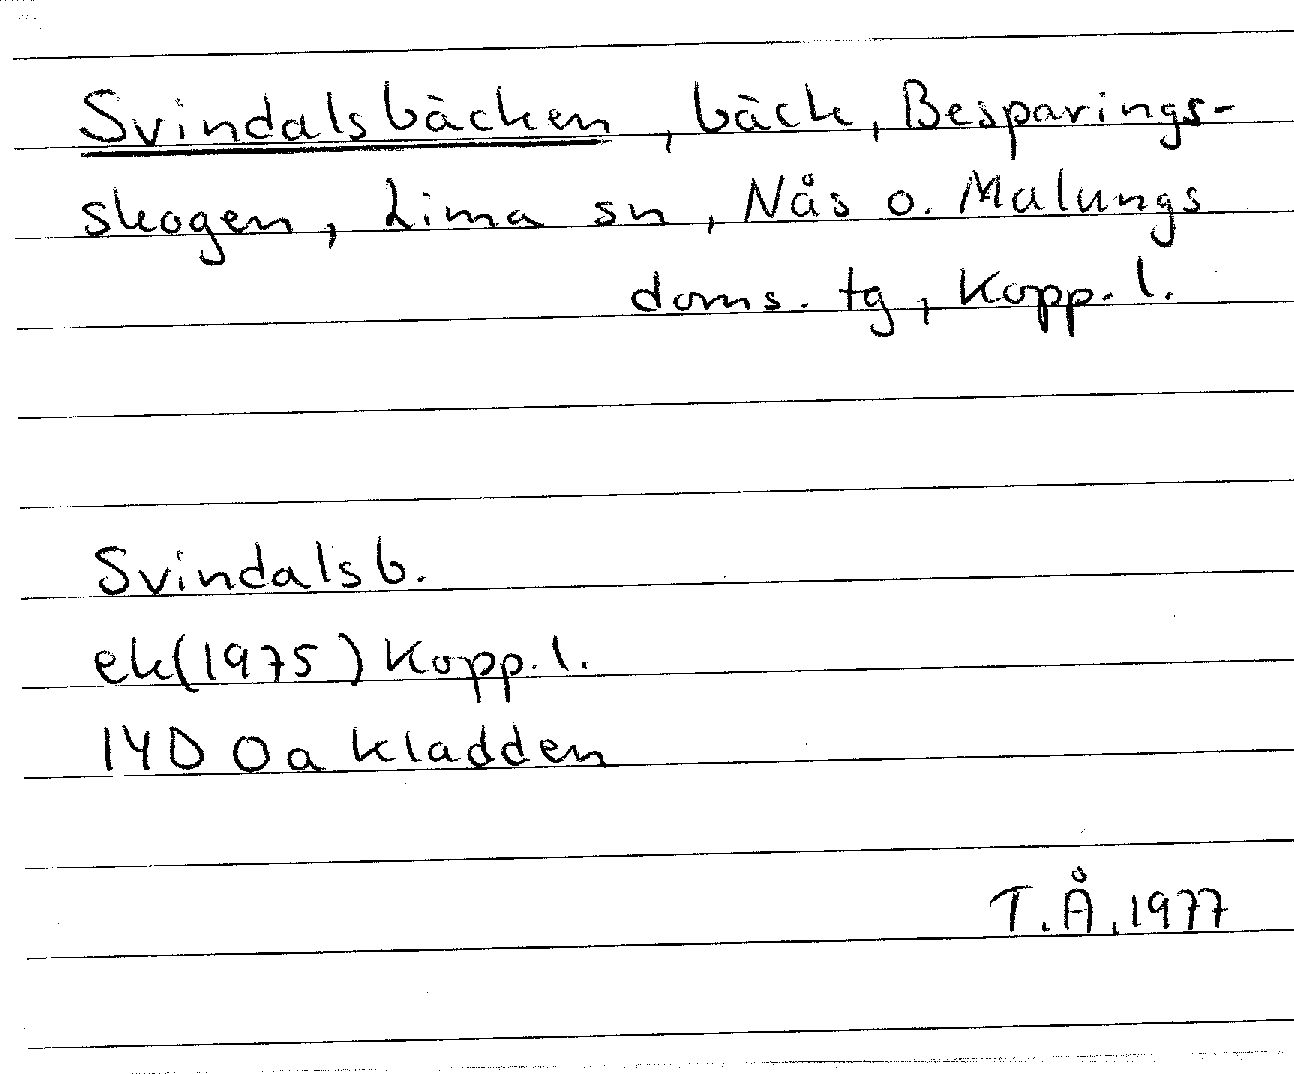 Svindalsbäcken, bäck, Besparings-
skogen, Lima sn, Nås o. Malungs
doms. tg, Kopp. l.
Svindalsb.
ek(1975) Kopp. l.
14D 0a kladden
T.Å, 1977